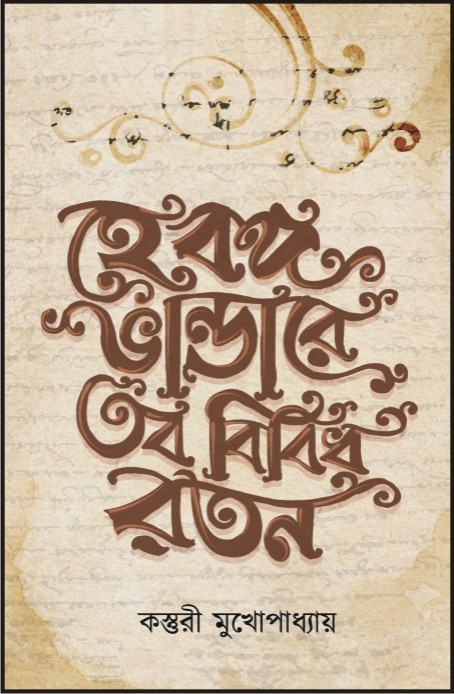 হে বঙ্গ
ভান্ডারে
তব বিবিধ
রতন
কস্তুরী মুখোপাধ্যায়